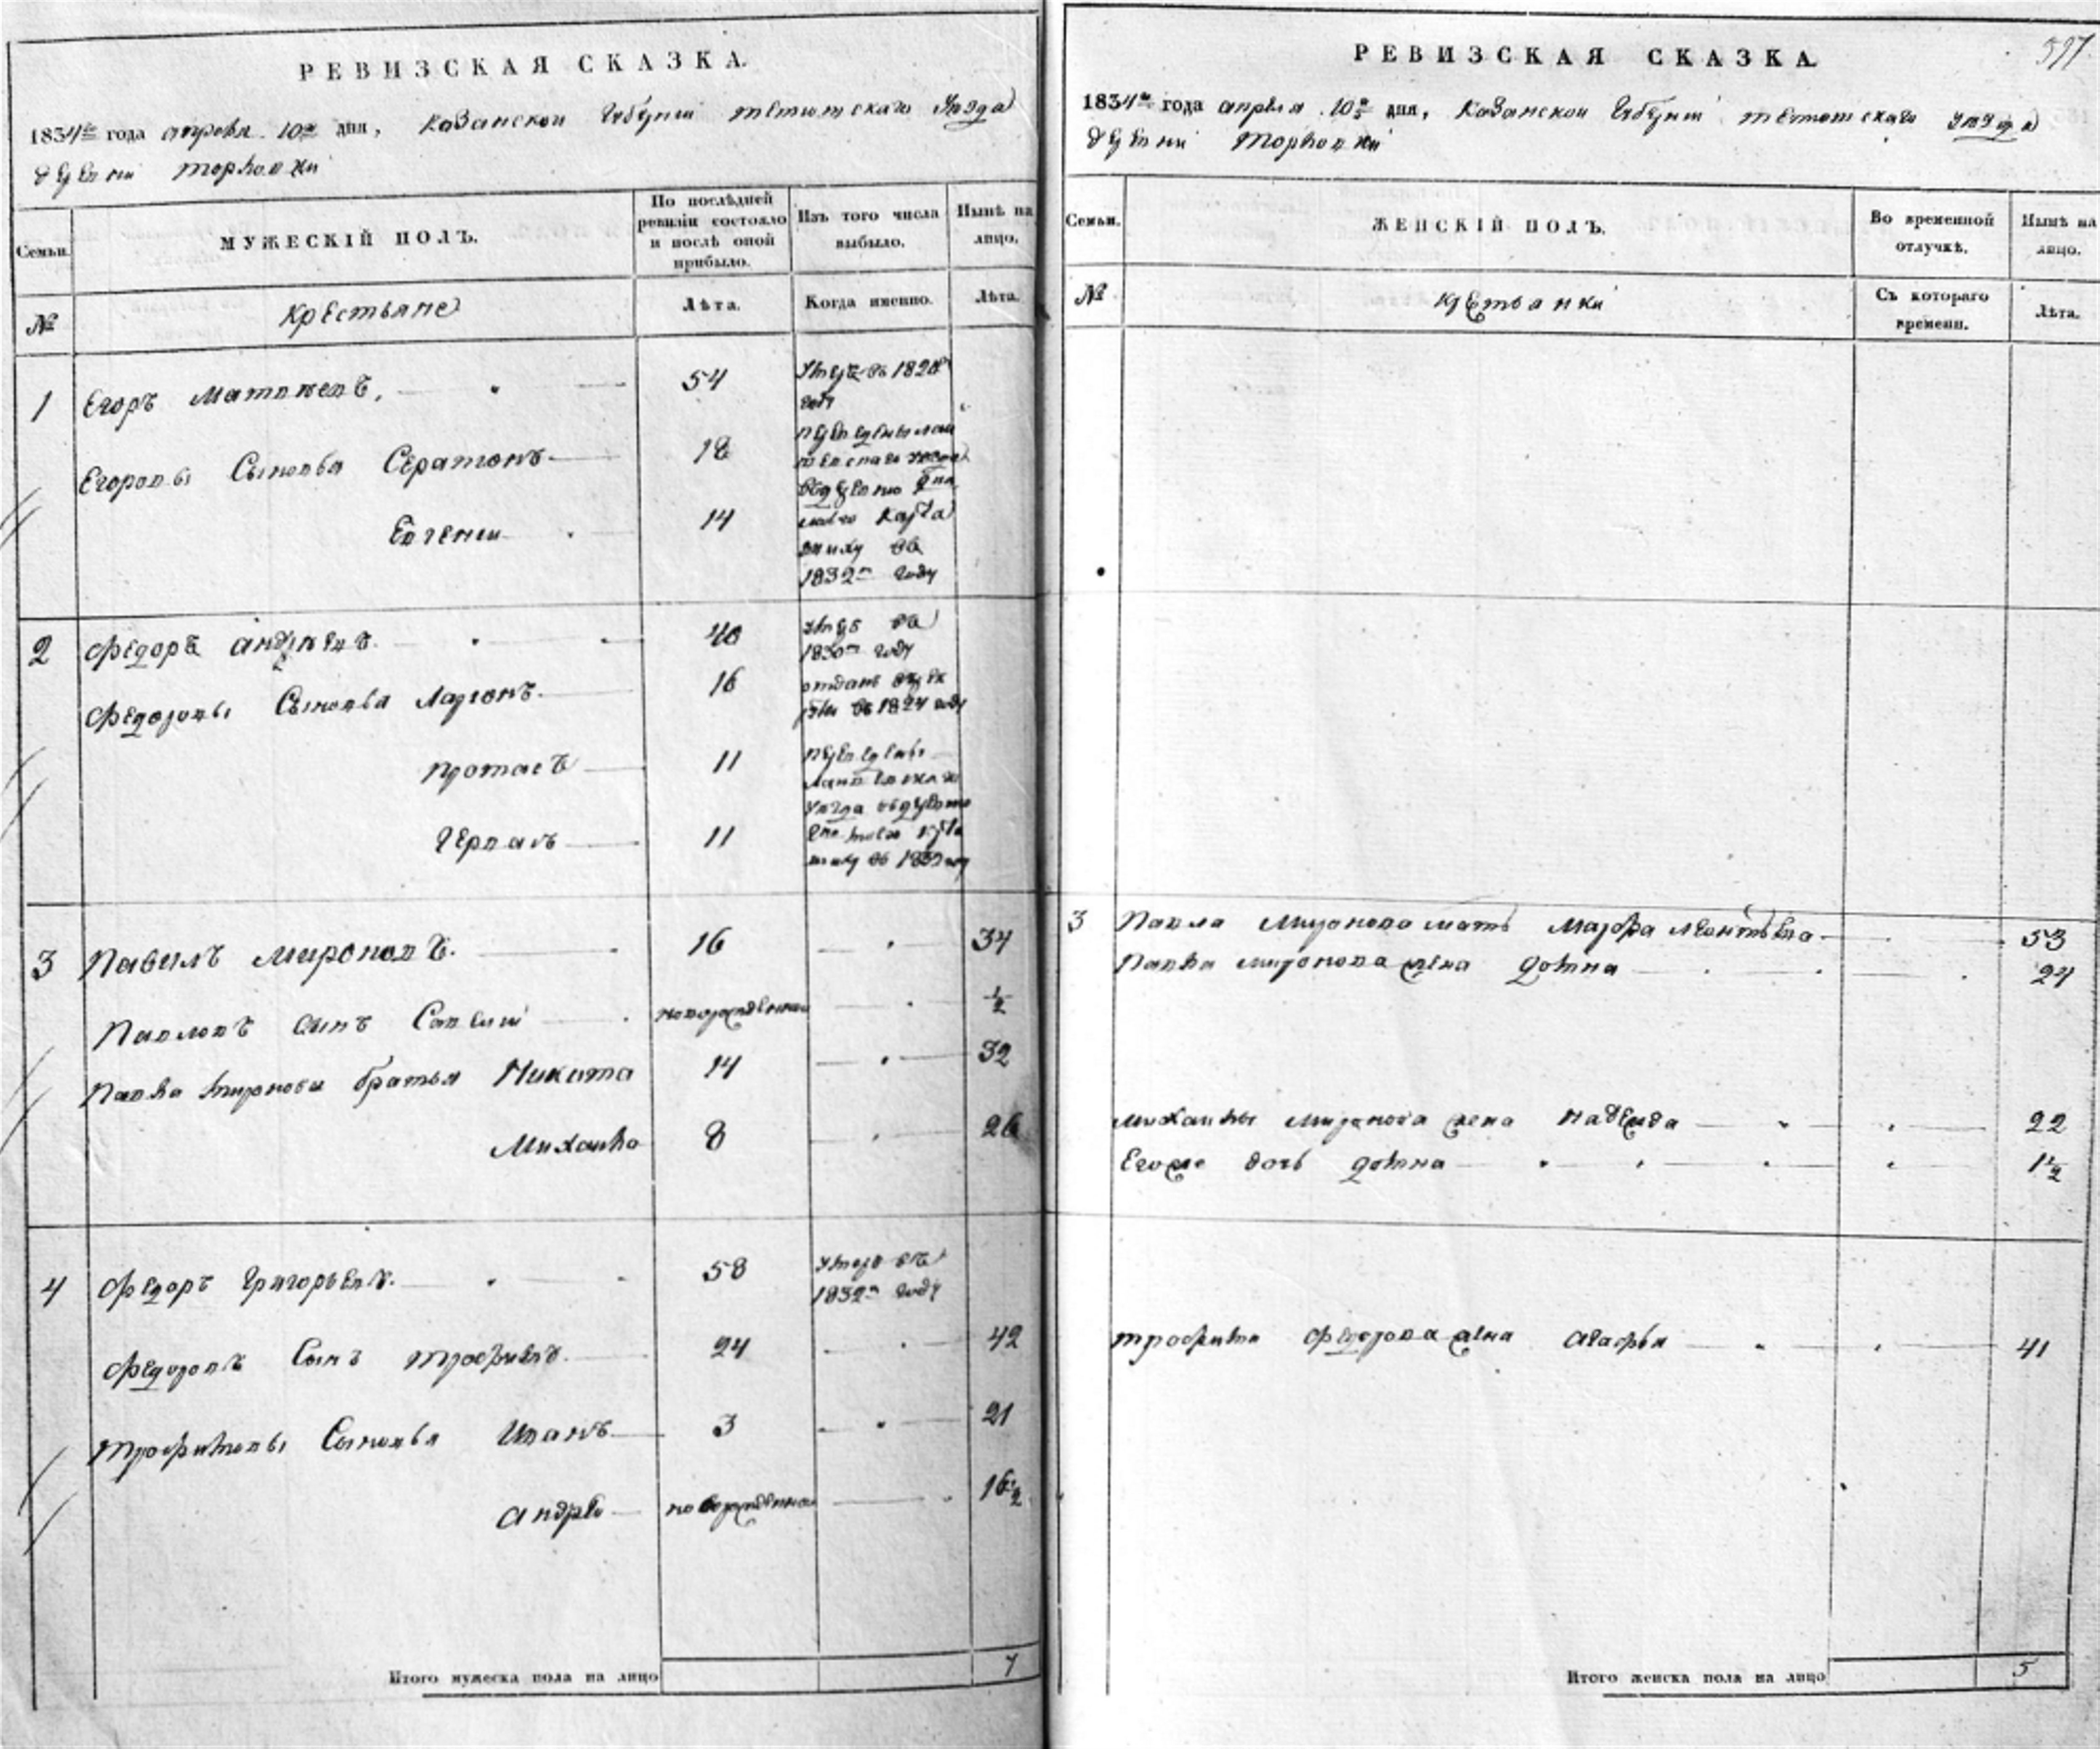 РЕВИЗСКАЯ СКАЗКА.
1834го года апреля 10го дня, Казанской Губернии тетюшскаго Уезда
деревни
МУЖЕСКІЙ ПОЛЪ.
Семьи.
По послѣдней
ревизіи состояло
и послѣ оной
прибыло.
Изъ того числа
выбыло.
Нынѣ на
лицо.
№
Крестьяне
Лѣта.
Когда именно.
Лѣта.
1
Егоръ Матвеевъ.
54
Умре въ 1820м
году
Егоровы Сыновья
18
Евгений
14
1832м году
2
Федоръ андреевъ.
40
Умре въ
1830м году
Федоровы Сыновья Ларионъ.
16
отданъ въ рек
руты въ 1824 году
Протасъ
11
Германъ
11
3
Павилъ Мироновъ.
16
34
Павловъ сынъ Савелий
новорожденной
1/2
Павла Миронова братья Никита
14
32
Михайло
8
26
4
Федоръ Григорьевъ.
58
Умре въ
1832м году
Федоровъ Сынъ трофимъ.
24
42
трофимовы Сыновья Иванъ
3
21
андрей
новорожденной
16 1/2
Итого мужеска пола на лицо
7
597
РЕВИЗСКАЯ СКАЗКА.
1834го года апреля 10го дня, Казанской Губернии тетюшскаго уезда
деревни
Семьи.
ЖЕНСКІЙ ПОЛЪ.
Во временной
отлучкѣ.
Нынѣ на
лицо.
№
крестьянки
Съ котораго
времени.
Лѣта.
3
Павла Миронова мать Марфа леонтьева
53
Павла миронова жена домна
24
михайлы миронова жена надежда
22
Егоже дочь домна
1 1/2
трофима федорова жена агафья
41
Итого женска пола на лицо
5